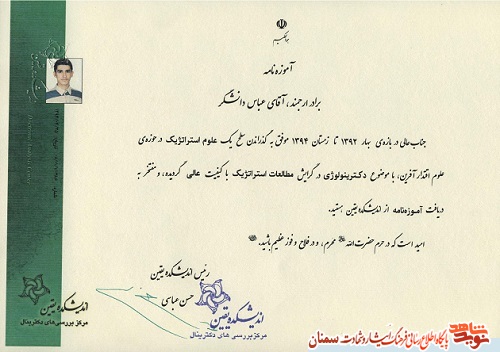 آموزه نامه
برادر ارجمند، آقای عباس دانشگر
جنابعالی در بازه‌ی بهار ۱۳۹۲ تا زمستان ۱۳۹۴ موفق به گذراندن سطح یک علوم استراتژیک در حوزه‌ی
علوم اقتدار آفرین، با موضوع دکترینولوژی در گرایش مطالعات استراتژیک با کیفیت عالی گردیده، و مفتخر به
دریافت آموزه‌نامه از اندیشکده یقین هستید.
امید است که در حرم حضرت الله محرم، و در فلاح و فوز عظیم باشید.
رئیس اندیشکده یقین
حسن عباسی
اندیشکده یقین
مرکز بررسی های دکترینال
اندیشکده یقین
مرکز بررسی های دکترینال
پایگاه اطلاع رسانی فرهنگ ایثار و شهادت سمنان
نوید شاهد